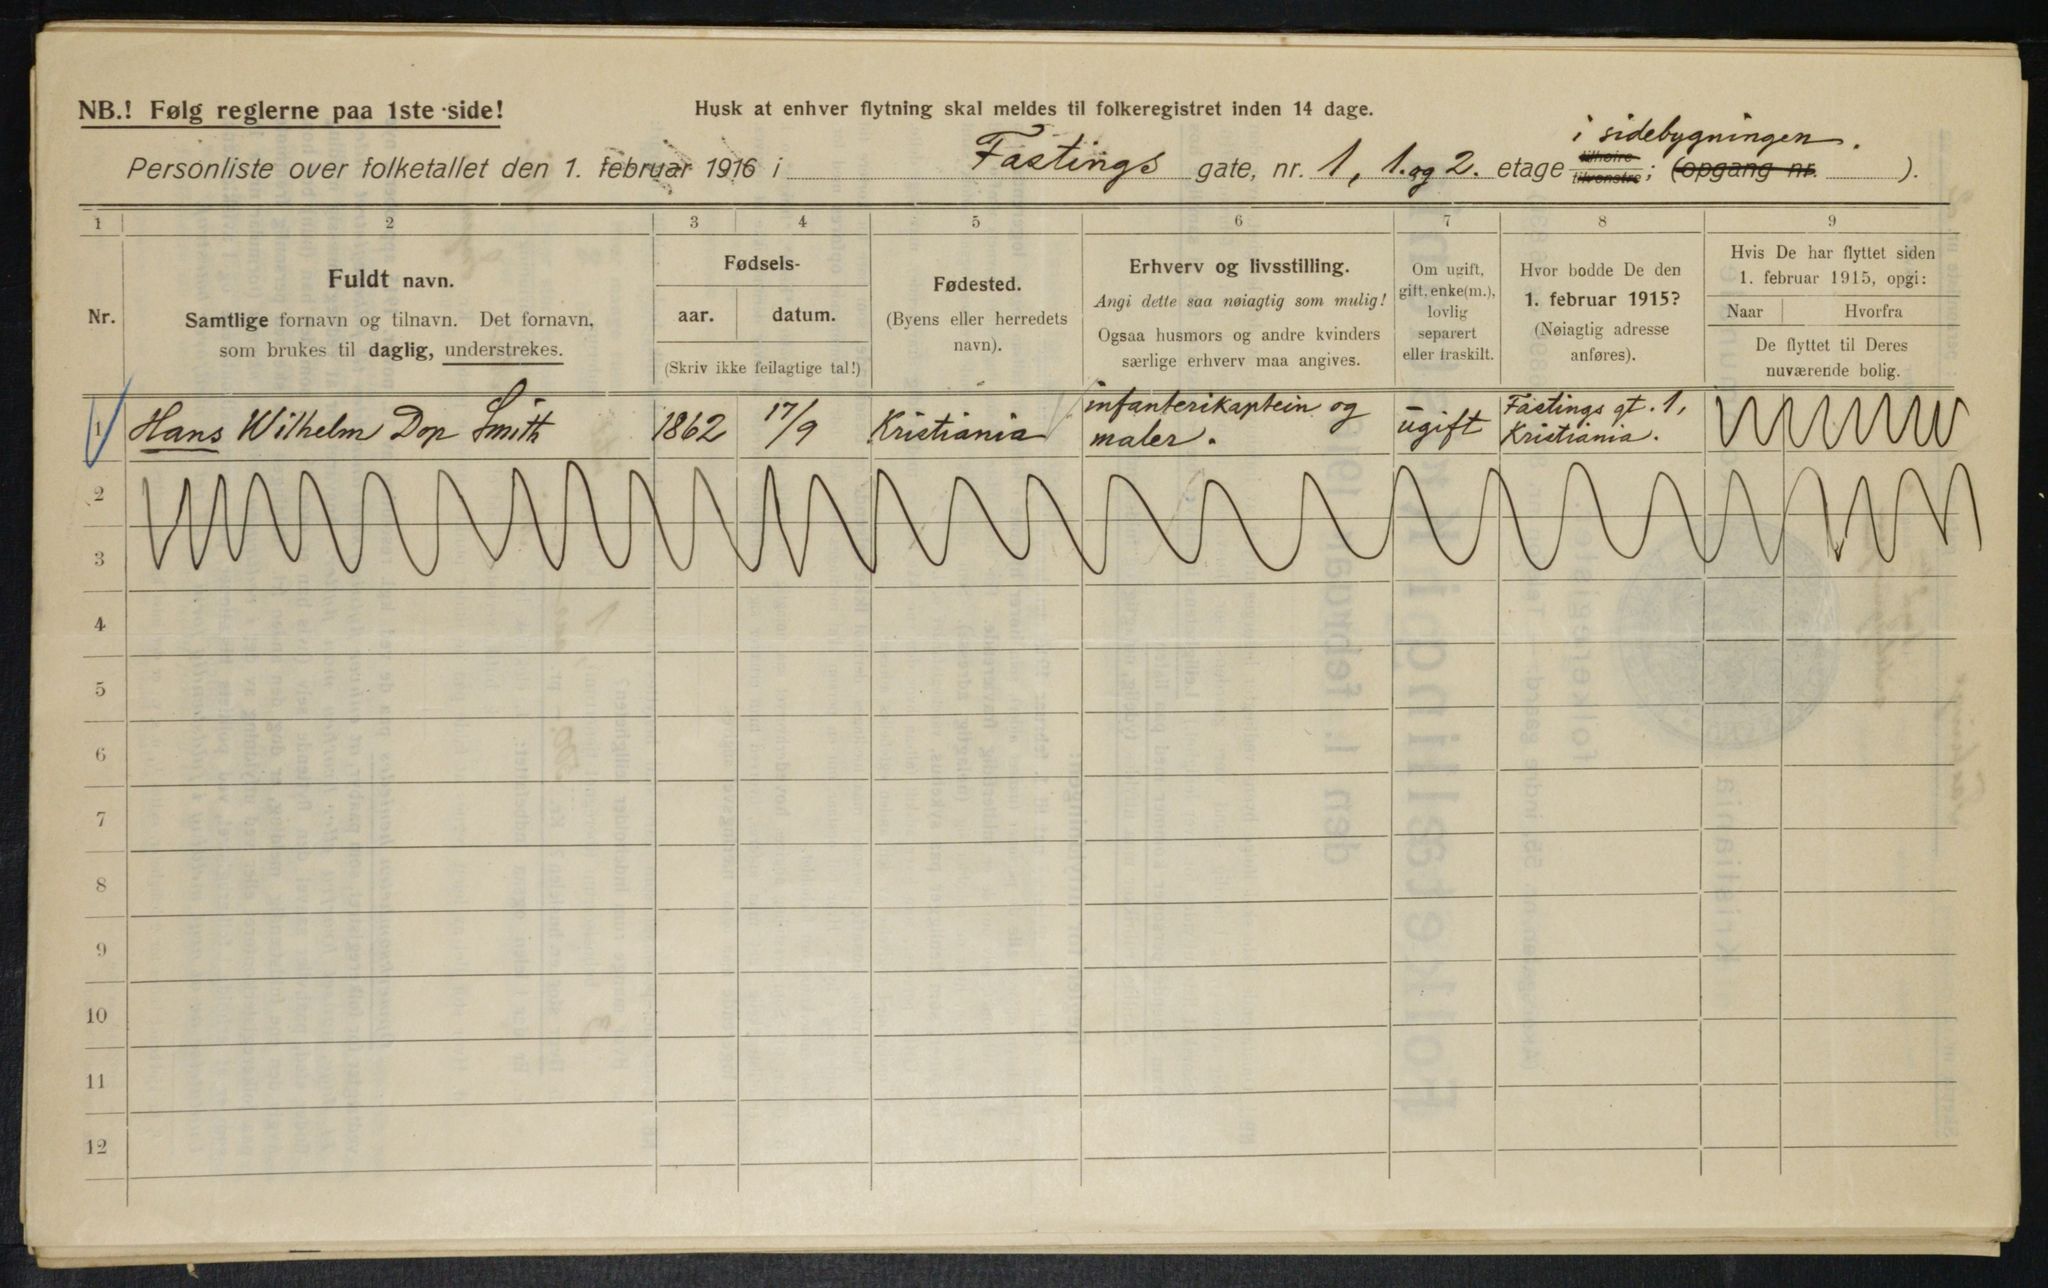 NB.! Følg reglerne paa 1ste side!
Husk at enhver flytning skal meldes til folkeregistret inden 14 dage.
i sidebygningen.
Personliste over folketallet den 1. februar 1916 i Fastings gate, nr. 1, 1. og 2. etage tilhøire tilvenstre; (opgang nr. ).
1 2 3 4 5 6 7 8 9
Nr.
Fuldt navn.
Samtlige fornavn og tilnavn. Det fornavn,
som brukes til daglig, understrekes.
Fødsels-
aar. datum.
(Skriv ikke feilagtige tal!)
Fødested.
(Byens eller herredets
navn).
Erhverv og livsstilling.
Angi dette saa nøiagtig som mulig!
Ogsaa husmors og andre kvinders
særlige erhverv maa angives.
Om ugift,
gift, enke(m.),
lovlig
separert
eller fraskilt.
Hvor bodde De den
1. februar 1915?
(Nøiagtig adresse
anføres).
Hvis De har flyttet siden
1. februar 1915, opgi:
Naar Hvorfra
De flyttet til Deres
nuværende bolig.
1 Hans Wilhelm Dop Smith 1862 17/9 Kristiania infanterikaptein og
maler. ugift Fastings gt. 1,
Kristiania.
2
3
4
5
6
7
8
9
10
11
12